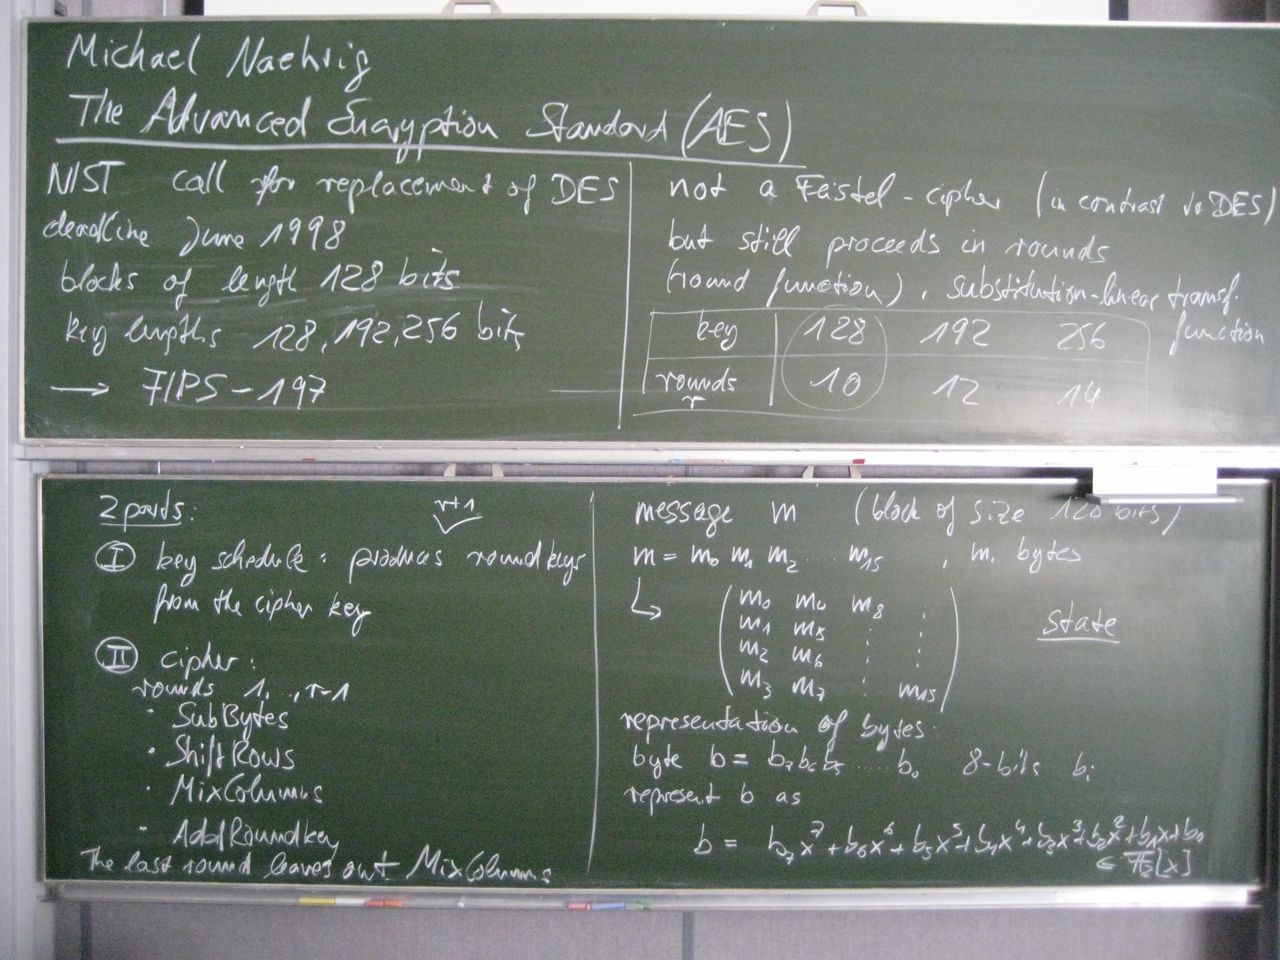 Michael Naehrig
The Advanced Encryption Standard (AES)
NIST call for replacement of DES
deadline June 1998
blocks of length 128 bits
key lengths 128, 192, 256 bits
→ FIPS - 197
not a Feistel - cipher (in contrast to DES)
but still proceeds in rounds
(round function), substitution-linear transf.
function
key 128 192 256
rounds 10 12 14
r
2 parts:
r+1
I key schedule: produces roundkeys
from the cipher key
II cipher:
rounds 1, .., r-1
· SubBytes
· ShiftRows
· MixColumns
· AddRoundkey
The last round leaves out MixColumns
message m (block of size 128 bits)
m = m₀ m₁ m₂ .... m₁₅ , mᵢ bytes
↳ ( m₀ m₄ m₈ :
m₁ m₅ : :
m₂ m₆ : :
m₃ m₇ : m₁₅ )
State
representation of bytes:
byte b = b₇b₆b₅ ..... b₀ 8-bits bᵢ
represent b as
b = b₇x⁷ + b₆x⁶ + b₅x⁵ + b₄x⁴ + b₃x³ + b₂x² + b₁x + b₀
∈ 𝔽₂[x]